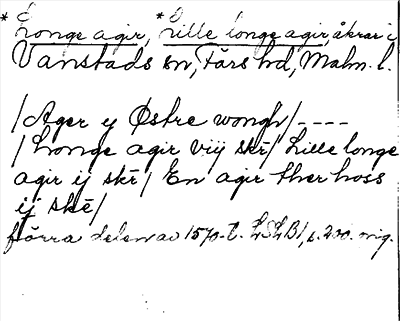 * Longe agir, * Lille longe agir, åkrar i
Vanstads sn, Färs hd, Malm. l.
/Ager y Østre wongh/----
/Longe agir viij skē/ Lille longe
agir ij skē/ En agir ther hoss
ij skē/
förra delen av 1570-t. LSLB1, s. 200. orig.